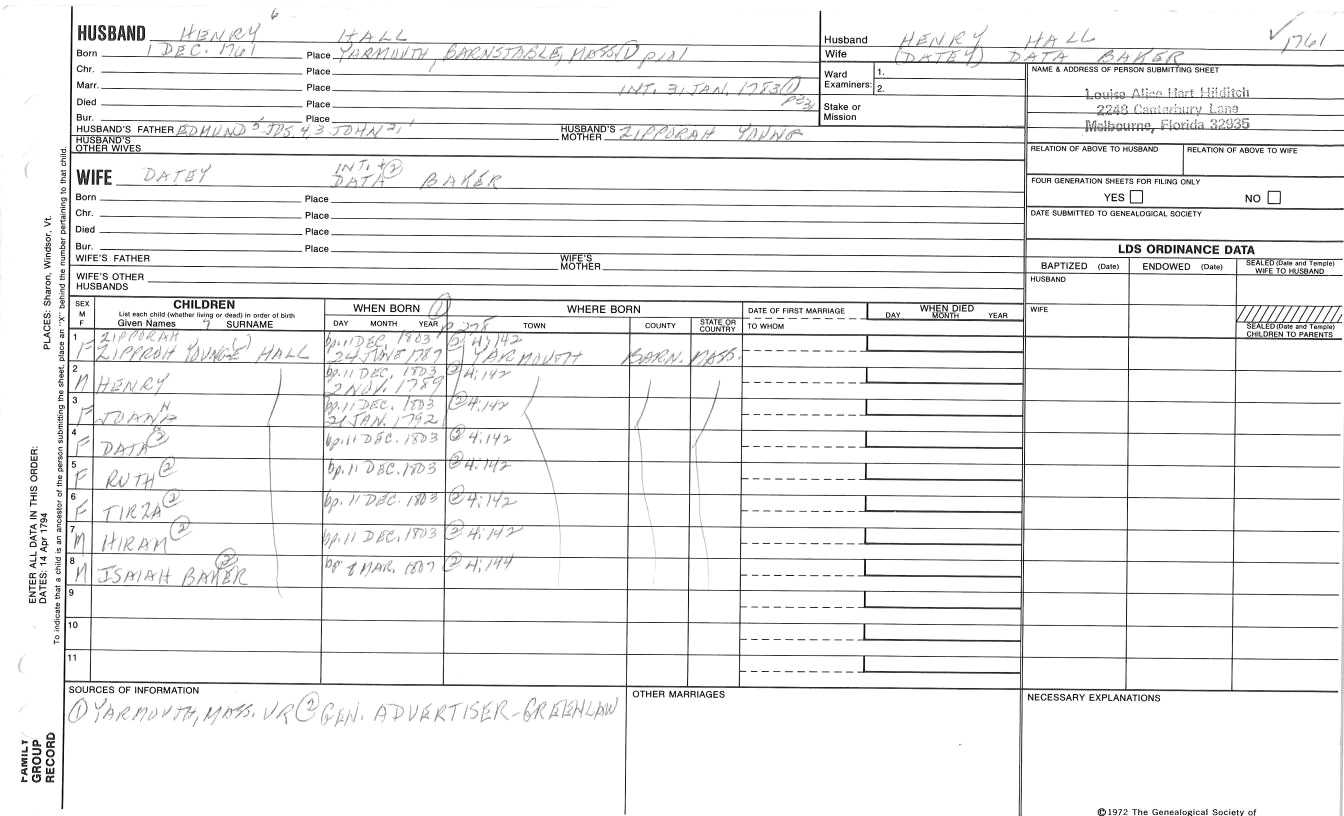 6
HUSBAND HENRY HALL
Born 1 DEC. 1761 Place YARMOUTH, BARNSTABLE, MASS ① p101
Chr. Place
Marr. Place INT. 31 JAN. 1783 ①
Died Place
Bur. Place
HUSBAND'S FATHER EDMUND 5 JOS 4, 3 JOHN 2, 1 HUSBAND'S MOTHER ZIPPORAH YOUNG
HUSBAND'S OTHER WIVES
WIFE DATEY INT. + ② DATA BAKER
Born Place
Chr. Place
Died Place
Bur. Place
WIFE'S FATHER WIFE'S MOTHER
WIFE'S OTHER HUSBANDS
Husband HENRY HALL √1761
Wife (DATEY) DATA BAKER
Ward Examiners: 1.
2.
Stake or Mission
NAME & ADDRESS OF PERSON SUBMITTING SHEET
Louise Alice Hart Hilditch
2248 Canterbury Lane
Melbourne, Florida 32935
RELATION OF ABOVE TO HUSBAND RELATION OF ABOVE TO WIFE
FOUR GENERATION SHEETS FOR FILING ONLY
YES NO
DATE SUBMITTED TO GENEALOGICAL SOCIETY
LDS ORDINANCE DATA
BAPTIZED (Date) ENDOWED (Date) SEALED (Date and Temple) WIFE TO HUSBAND
HUSBAND
WIFE
SEALED (Date and Temple) CHILDREN TO PARENTS
SEX M F
CHILDREN
List each child (whether living or dead) in order of birth
Given Names 7 SURNAME
WHEN BORN ①
DAY MONTH YEAR p 278
WHERE BORN
TOWN COUNTY STATE OR COUNTRY
DATE OF FIRST MARRIAGE
TO WHOM
WHEN DIED
DAY MONTH YEAR
1 ZIPPORAH bp. 11 DEC. 1803 ② 4:142
F ZIPPROAH YOUNGE HALL 24 JUNE 1787 YARMOUTH BARN. MASS.
2 bp. 11 DEC. 1803 ② 4:142
M HENRY 2 NOV. 1789
3 bp. 11 DEC. 1803 ② 4:142
F JOANNA 21 JAN. 1792
4 F DATA ② bp. 11 DEC. 1803 ② 4:142
5 F RUTH ② bp. 11 DEC. 1803 ② 4:142
6 F TIRZA ② bp. 11 DEC. 1803 ② 4:142
7 M HIRAM ② bp. 11 DEC. 1803 ② 4:142
8 M ISAIAH BAKER ② bp 8 MAR. 1807 ② 4:144
9
10
11
SOURCES OF INFORMATION
① YARMOUTH, MASS. VR ② GEN. ADVERTISER-GREENLAW
OTHER MARRIAGES
NECESSARY EXPLANATIONS
©1972 The Genealogical Society of
PLACES: Sharon, Windsor, Vt.
ENTER ALL DATA IN THIS ORDER:
DATES: 14 Apr 1794
To indicate that a child is an ancestor of the person submitting the sheet, place an "X" behind the number pertaining to that child.
FAMILY GROUP RECORD